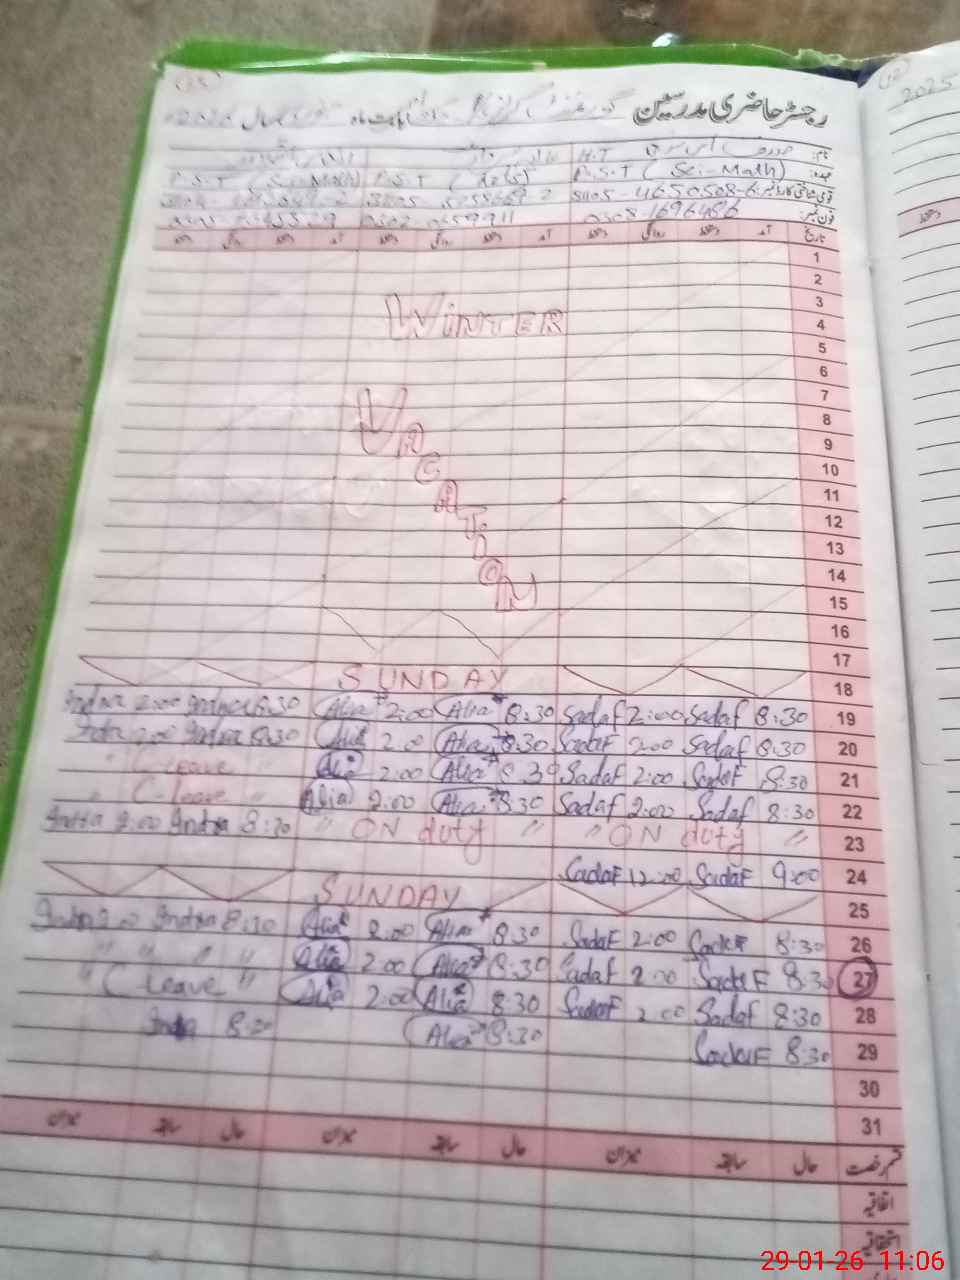 رجسٹر حاضری مدرسین گورنمنٹ گرلز بابت ماہ سال 2026
2025
نام: H.T
عہدہ: P.S.T (Sci-Math) P.S.T P.S.T (Sci-Math)
قومی شناختی کارڈ نمبر
فون نمبر: 0308-1696486
تاریخ آمد دستخط روانگی دستخط آمد دستخط روانگی دستخط آمد دستخط روانگی دستخط
1
2
3
WINTER
4
5
6
7
VACATION
8
9
10
11
12
13
14
15
16
17
SUNDAY
18
Indra 2:00 Indra 8:30 Alia 2:00 Alia 8:30 Sadaf 2:00 Sadaf 8:30 19
Indra 2:00 Indra 8:30 Alia 2:00 Alia 8:30 Sadaf 2:00 Sadaf 8:30 20
" C-leave " Alia 2:00 Alia 8:30 Sadaf 2:00 Sadaf 8:30 21
" C-leave " Alia 2:00 Alia 8:30 Sadaf 2:00 Sadaf 8:30 22
Indra 2:00 Indra 8:30 " ON duty " " ON duty " 23
Sadaf 12:00 Sadaf 9:00 24
SUNDAY 25
Indra 2:00 Indra 8:30 Alia 2:00 Alia 8:30 Sadaf 2:00 Sadaf 8:30 26
" " " " Alia 2:00 Alia 8:30 Sadaf 2:00 Sadaf 8:30 27
" C-leave " Alia 2:00 Alia 8:30 Sadaf 2:00 Sadaf 8:30 28
Indra Alia 8:30 Sadaf 8:30 29
30
31
قسم رخصت حال سابقہ میزان حال سابقہ میزان حال سابقہ میزان
اتفاقیہ
استحقاقیہ
29-01-26 11:06